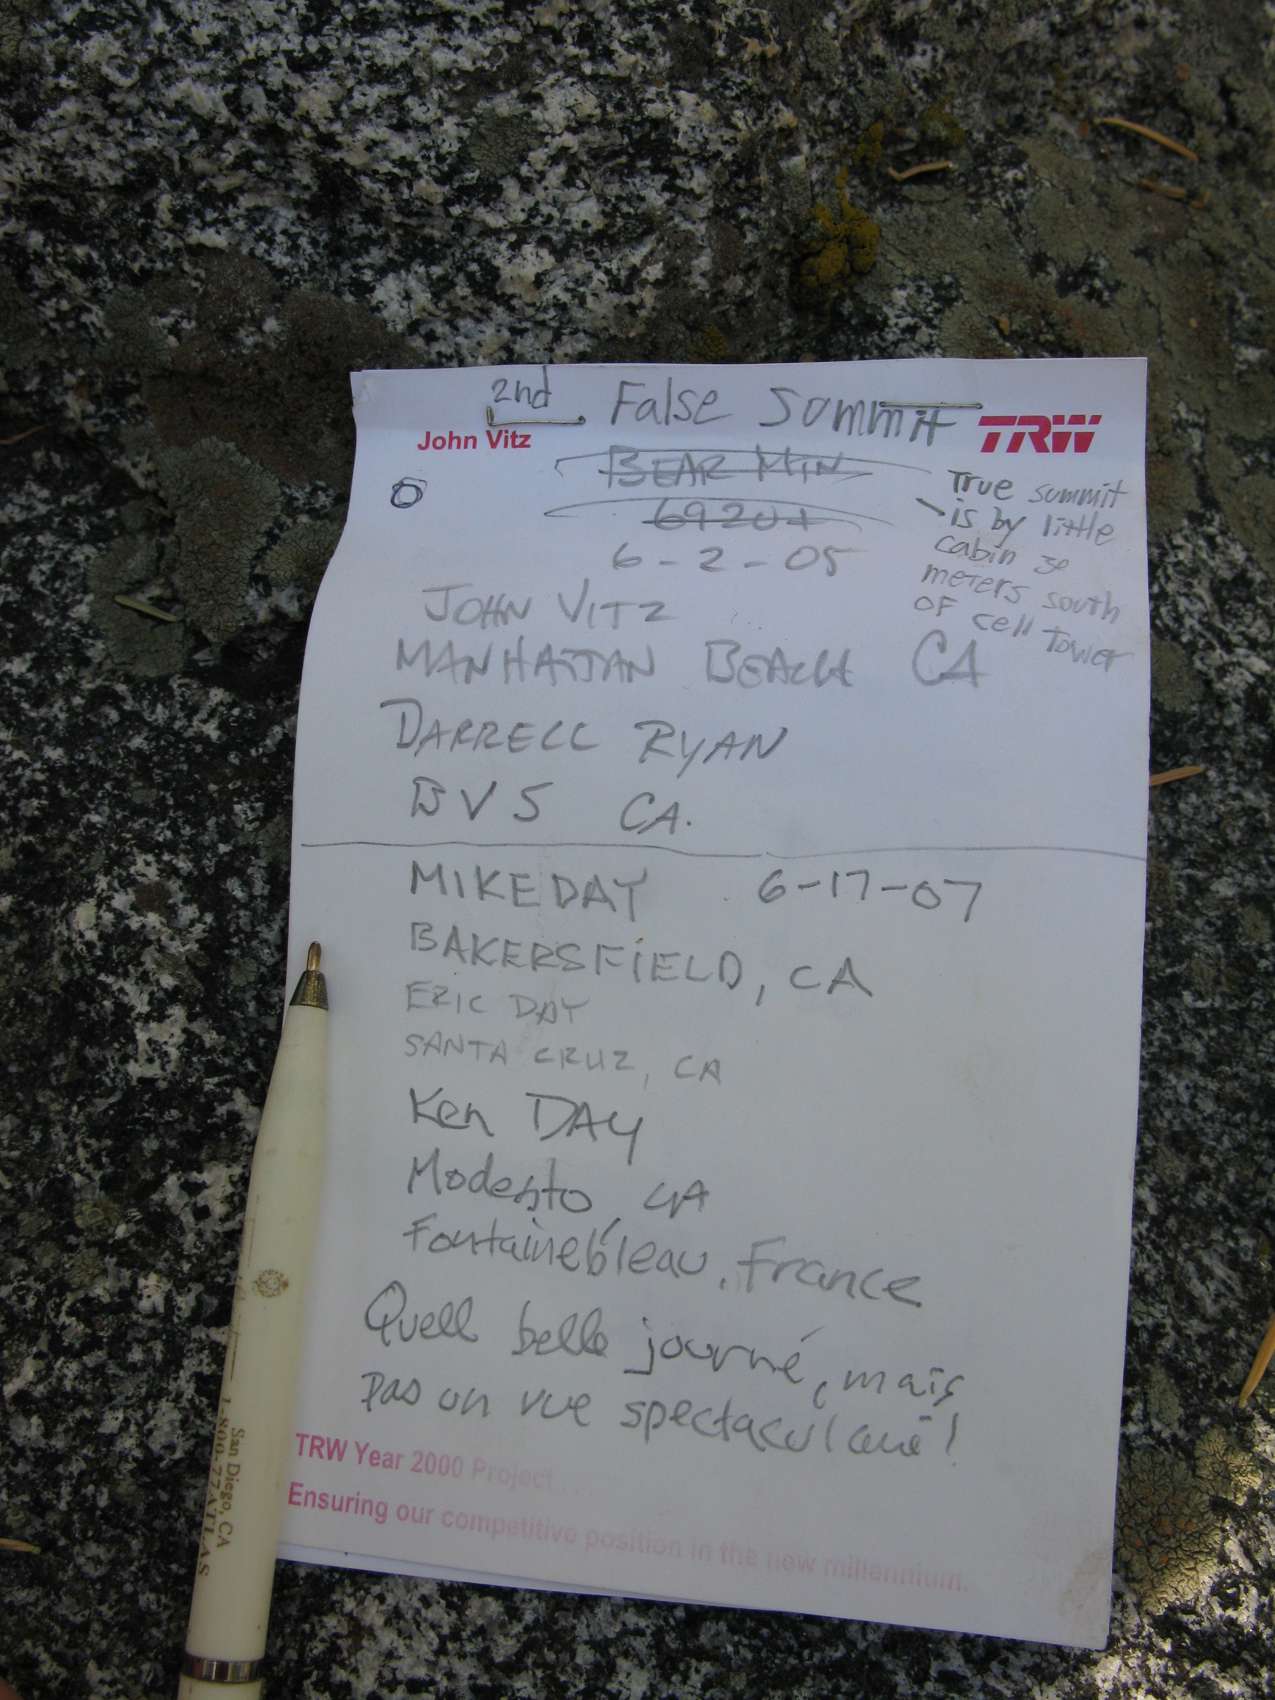 2nd False Summit
John Vitz
TRW
BEAR MTN
6920+
True summit
is by little
cabin 30
meters south
of cell tower
6-2-05
JOHN VITZ
MANHATTAN BEACH CA
DARRELL RYAN
BVS CA.
MIKE DAY 6-17-07
BAKERSFIELD, CA
ERIC DAY
SANTA CRUZ, CA
Ken DAY
Modesto CA
Fontainebleau, France
Quell belle journé, mais
pas un vue spectacular!
TRW Year 2000 Project . . .
Ensuring our competitive position in the new millennium.
San Diego, CA
1-800-77ATLAS